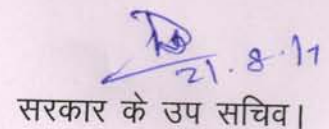 21.8.17
सरकार के उप सचिव।